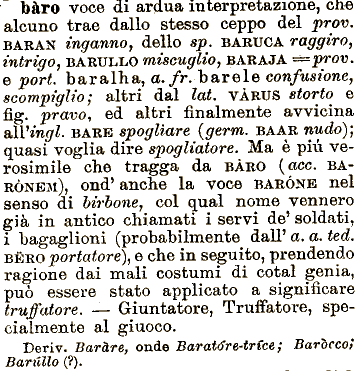 bàro voce di ardua interpretazione, che
alcuno trae dallo stesso ceppo del prov.
BARAN inganno, dello sp. BARUCA raggiro,
intrigo, BARULLO miscuglio, BARAJA = prov.
e port. baralha, a. fr. barele confusione,
scompiglio; altri dal lat. VÀRUS storto e
fig. pravo, ed altri finalmente avvicina
all'ingl. BARE spogliare (germ. BAAR nudo);
quasi voglia dire spogliatore. Ma è più ve-
rosimile che tragga da BÀRO (acc. BA-
RÒNEM), ond' anche la voce BARÓNE nel
senso di birbone, col qual nome vennero
già in antico chiamati i servi de' soldati,
i bagaglioni (probabilmente dall' a. a. ted.
BËRO portatore), e che in seguito, prendendo
ragione dai mali costumi di cotal genia,
può essere stato applicato a significare
truffatore. — Giuntatore, Truffatore, spe-
cialmente al giuoco.
Deriv. Baràre, onde Baratóre-tríce; Baròcco;
Barúllo (?).